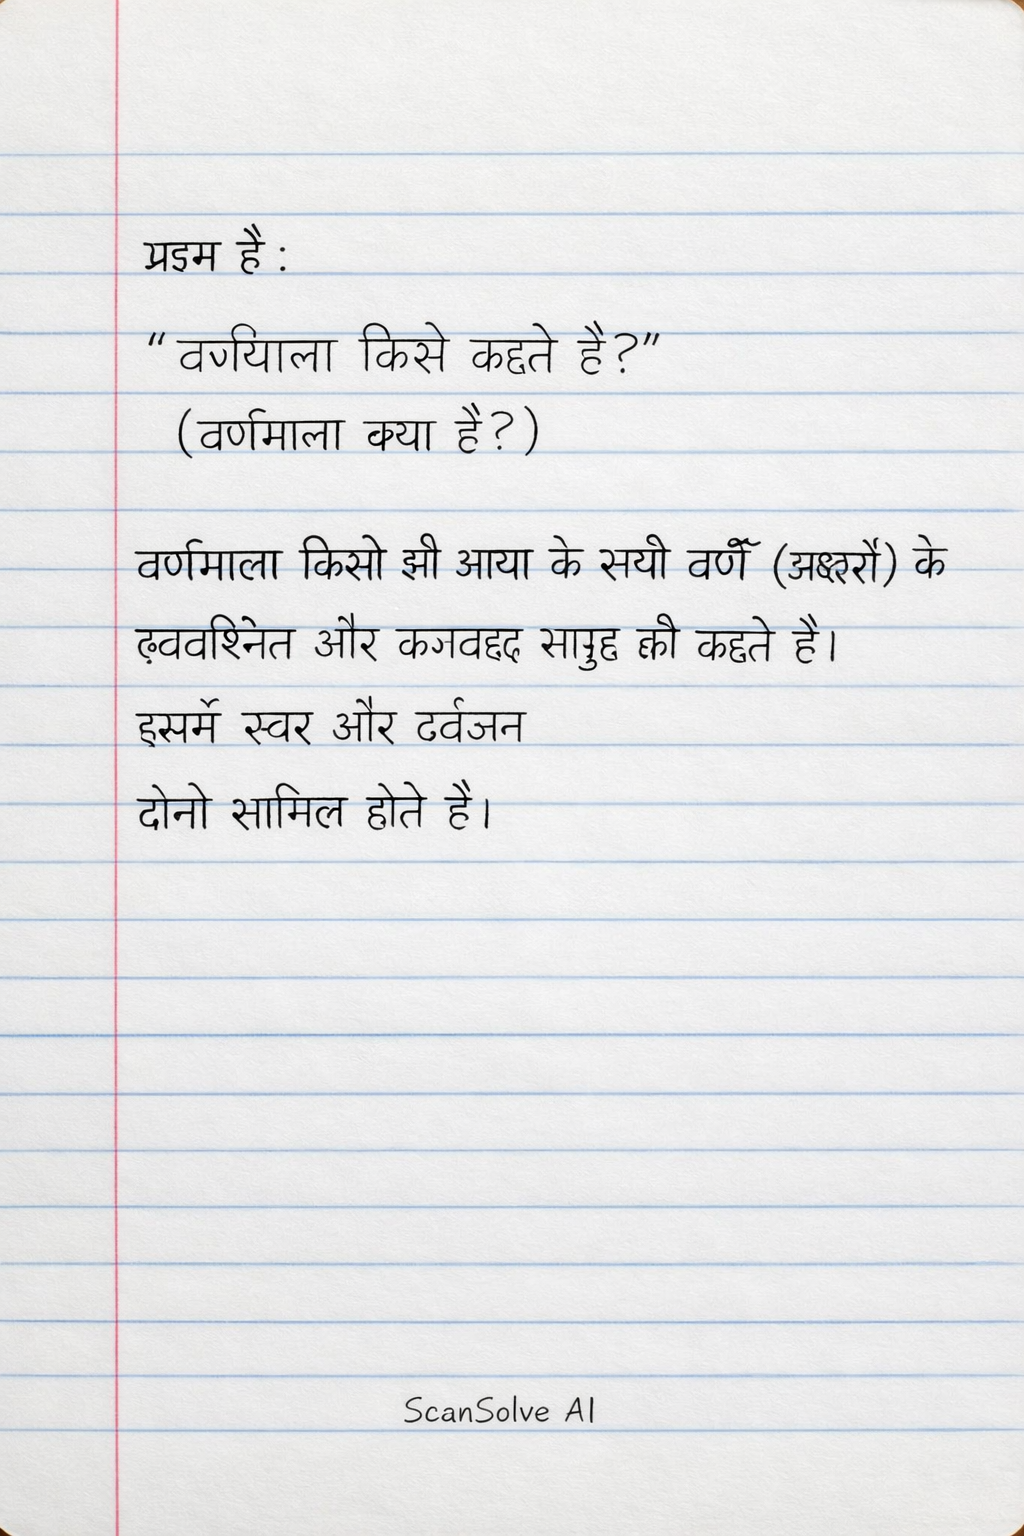 प्रइम है :
“वर्णयािला किसे कद्दते है?”
(वर्णमाला क्या है?)
वर्णमाला किसो झी आया के सयी वर्णें (अक्षरौ) के
और कगवद्दद की कद्दते है।
इसमें स्वर और ढर्वजन
दोनो सामिल होते है।
ScanSolve AI